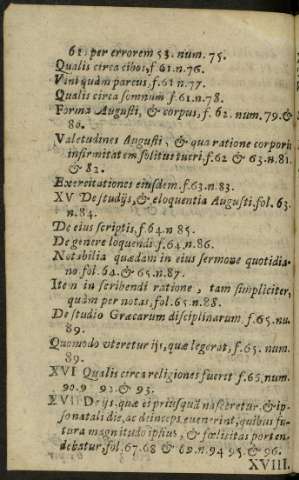 61. per errorem 53. num. 75.
Qualis circa cibos, f 61.n.76.
Vini quàm parcus, f.61 n.77.
Qualis circa somnum f 61.n.78.
Forma Augusti, & corpus, f. 62. num. 79. &
80.
Valetudines Augusti, & qua ratione corporis
infirmitatem solitus tueri, f.62 & 63. n.81.
& 82.
Exercitationes eiusdem. f.63.n.83.
XV De studijs, & eloquentia Augusti. fol. 63.
n.84.
De eius scriptis, f.64.n 85.
De genere loquendi, f.64.n.86.
Notabilia quædam in eius sermone quotidia-
no fol. 64. & 65. n.87.
Item in scribendi ratione, tam simpliciter,
quàm per notas, fol. 65. n.88.
De studio Græcarum disciplinarum f.65. nu.
89.
Quomodo uteretur ijs, quæ legerat, f.65. num.
89.
XVI Qualis circa religiones fuerit f.66. num.
90.9 92. & 93.
XVII De ijs, quæ ei priusquã nasceretur, & ip-
so natali die, ac deinceps euenerint, quibus fu-
tura magnitudo ipsius, & fœlicitas porten-
debatur, fol. 67.68 & 69. n.94 95 & 96.
XVIII.